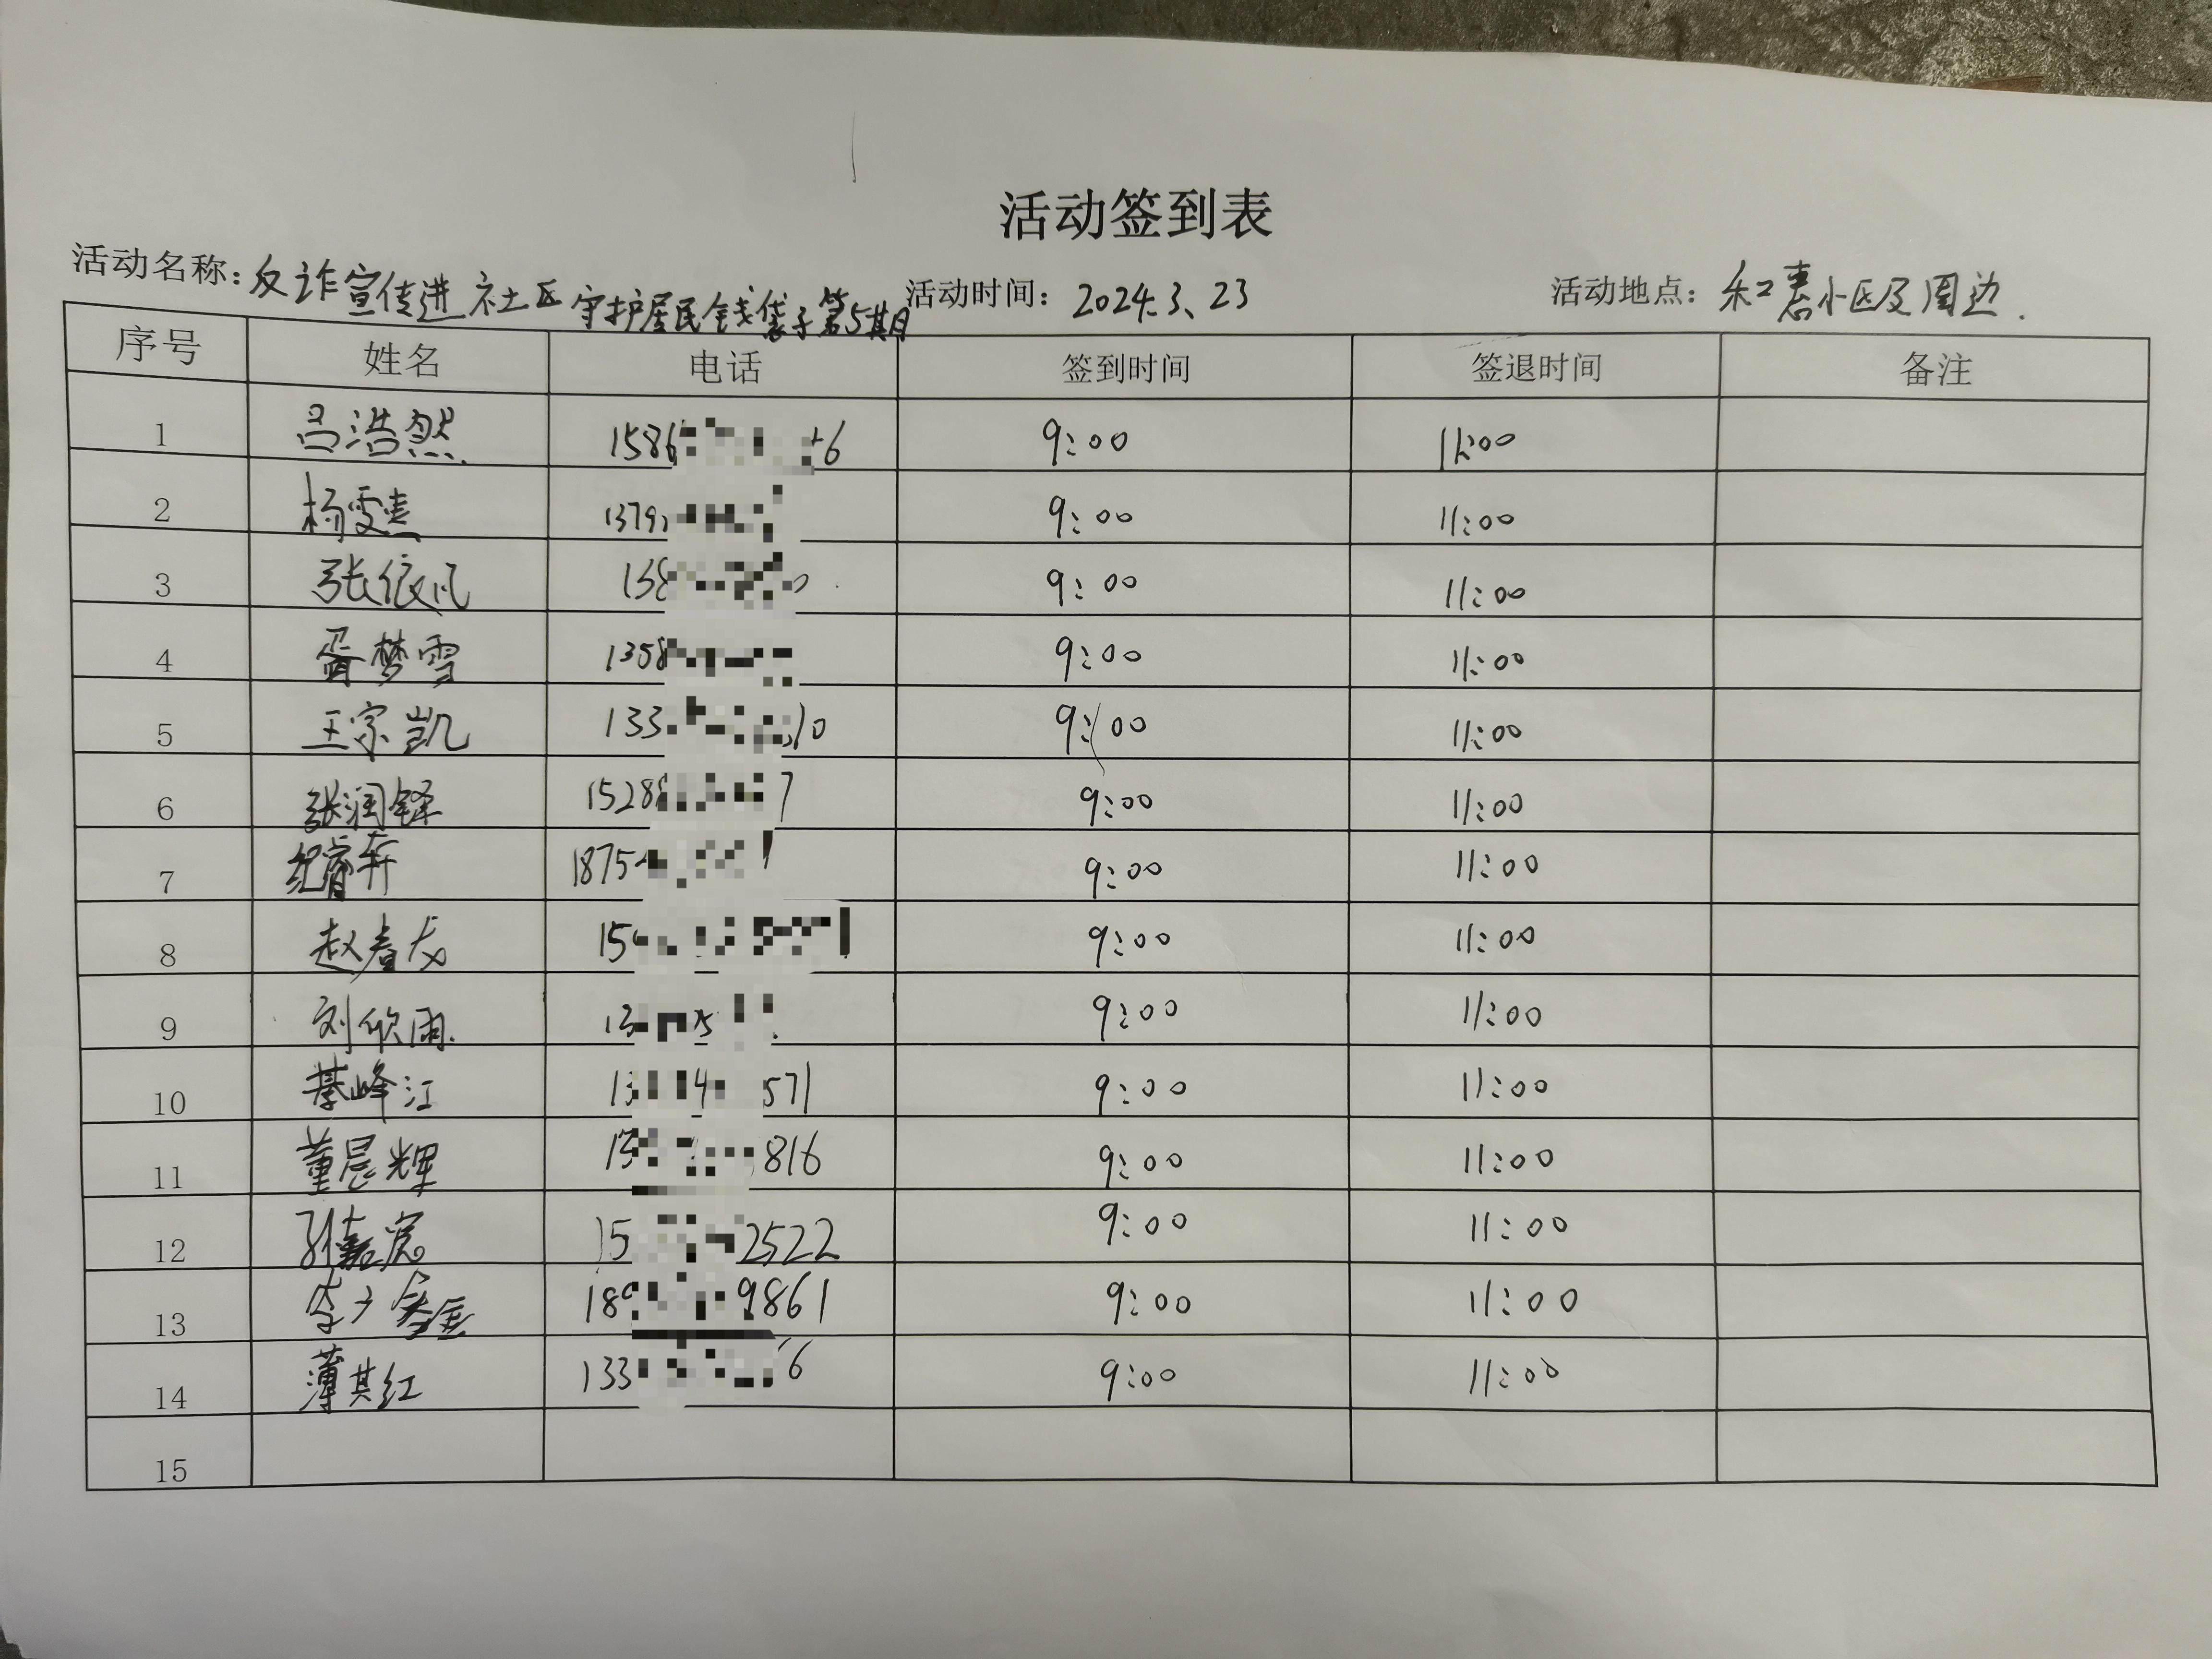 活动签到表
活动名称：反诈宣传进社区守护居民钱袋子第5期 活动时间：2024.3、23 活动地点：和惠小区及周边.
序号 姓名 电话 签到时间 签退时间 备注
1 吕浩然 1586 6 9:00 11:00
2 杨雯 1379 9:00 11:00
3 张依凡 158 9:00 11:00
4 胥梦雪 1358 9:00 11:00
5 王宗凯 133 10 9:00 11:00
6 张润铎 1528 7 9:00 11:00
7 纪富轩 1875 9:00 11:00
8 赵春友 15 9:00 11:00
9 刘欣雨. 13 9:00 11:00
10 綦峰江 13 4 571 9:00 11:00
11 董晨辉 15 816 9:00 11:00
12 15 2522 9:00 11:00
13 李 18 9861 9:00 11:00
14 薄其红 133 6 9:00 11:00
15